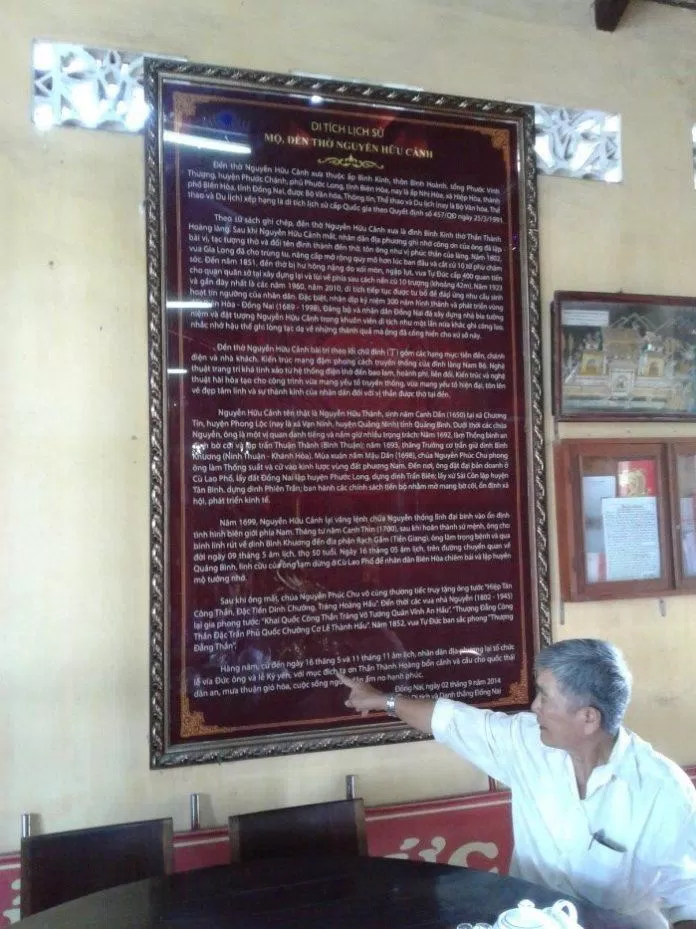 DI TÍCH LỊCH SỬ
MỘ, ĐỀN THỜ NGUYỄN HỮU CẢNH
Đền thờ Nguyễn Hữu Cảnh xưa thuộc ấp Bình Kính, thôn Bình Hoành, tổng Phước Vinh
Thượng, huyện Phước Chánh, phủ Phước Long, tỉnh Biên Hòa, nay là ấp Nhị Hòa, xã Hiệp Hòa, thành
phố Biên Hòa, tỉnh Đồng Nai, được Bộ Văn hóa, Thông tin, Thể thao và Du lịch (nay là Bộ Văn hóa, Thể
thao và Du lịch) xếp hạng là di tích lịch sử cấp Quốc gia theo Quyết định số 457/QĐ ngày 25/3/1991.
Theo sử sách ghi chép, đền thờ Nguyễn Hữu Cảnh xưa là đình Bình Kính thờ Thần Thành
Hoàng làng. Sau khi Nguyễn Hữu Cảnh mất, nhân dân địa phương ghi nhớ công ơn của ông đã lập
bài vị, tạc tượng thờ và đổi tên đình thành đền thờ, tôn ông như vị phúc thần của làng. Năm 1802,
vua Gia Long đã cho trùng tu, nâng cấp mở rộng quy mô hơn lúc ban đầu và cắt cử 10 từ phu chăm
sóc. Đến năm 1851, đền thờ bị hư hỏng nặng do xói mòn, ngập lụt, vua Tự Đức cấp 400 quan tiền
cho quan quân sở tại xây dựng lại và lùi về phía sau cách nền cũ 10 trượng (khoảng 42m). Năm 1923
và gần đây nhất là các năm 1960, năm 2010, di tích tiếp tục được tu bổ để đáp ứng nhu cầu sinh
hoạt tín ngưỡng của nhân dân. Đặc biệt, nhân dịp kỷ niệm 300 năm hình thành và phát triển vùng
Hòa - Đồng Nai (1689 - 1998), Đảng bộ và nhân dân Đồng Nai đã xây dựng nhà bia tưởng
niệm và đặt tượng Nguyễn Hữu Cảnh trong khuôn viên di tích như một lần nữa khắc ghi công lao,
nhắc nhở hậu thế ghi lòng tạc dạ về những thành quả mà ông đã cống hiến cho xứ sở này.
Đền thờ Nguyễn Hữu Cảnh bài trí theo lối chữ đinh (丁) gồm các hạng mục tiền đền, chánh
điện và nhà khách. Kiến trúc mang đậm phong cách truyền thống của đình làng Nam Bộ. Nghệ
thuật trang trí khá tinh xảo từ hệ thống điện thờ đến bao lam, hoành phi, liễn đối. Kiến trúc và nghệ
thuật hài hòa tạo cho công trình vừa mang yếu tố truyền thống, vừa mang yếu tố hiện đại, tôn lên
vẻ đẹp tâm linh và sự thành kính của nhân dân đối với vị thần được thờ tại đền.
Nguyễn Hữu Cảnh tên thật là Nguyễn Hữu Thành, sinh năm Canh Dần (1650) tại xã Chương
Tín, huyện Phong Lộc (nay là xã Vạn Ninh, huyện Quảng Ninh) tỉnh Quảng Bình. Dưới thời các chúa
Nguyễn, ông là một vị quan danh tiếng và nắm giữ nhiều trọng trách: Năm 1692, làm Thống binh an
định bờ cõi và lập trấn Thuận Thành (Bình Thuận); năm 1693, thăng Trưởng cơ trấn giữ dinh Bình
Khương (Ninh Thuận - Khánh Hòa). Mùa xuân năm Mậu Dần (1698), chúa Nguyễn Phúc Chu phong
ông làm Thống suất và cử vào kinh lược vùng đất phương Nam. Đến nơi, ông đặt đại bản doanh ở
Cù Lao Phố, lấy đất Đồng Nai lập huyện Phước Long, dựng dinh Trấn Biên; lấy xứ Sài Côn lập huyện
Tân Bình, dựng dinh Phiên Trấn; ban hành các chính sách tiến bộ nhằm mở mang bờ cõi, ổn định xã
hội, phát triển kinh tế.
Năm 1699, Nguyễn Hữu Cảnh lại vâng lệnh chúa Nguyễn thống lĩnh đại binh vào ổn định
tình hình biên giới phía Nam. Tháng tư năm Canh Thìn (1700), sau khi hoàn thành sứ mệnh, ông cho
binh lính rút về dinh Bình Khương đến địa phận Rạch Gầm (Tiền Giang), ông lâm trọng bệnh và qua
đời ngày 09 tháng 5 âm lịch, thọ 50 tuổi. Ngày 16 tháng 05 âm lịch, trên đường chuyển quan về
Quảng Bình, linh cữu của ông tạm dừng ở Cù Lao Phố để nhân dân Biên Hòa chiêm bái và lập huyện
mộ tưởng nhớ.
Sau khi ông mất, chúa Nguyễn Phúc Chu vô cùng thương tiếc truy tặng ông tước "Hiệp Tán
Công Thần, Đặc Tiến Dinh Chưởng, Tráng Hoàng Hầu". Đến thời các vua nhà Nguyễn (1802 - 1945)
lại gia phong tước: "Khai Quốc Công Thần Tráng Võ Tướng Quân Vĩnh An Hầu", "Thượng Đẳng Công
Thần Đặc Trấn Phủ Quốc Chưởng Cơ Lễ Thành Hầu". Năm 1852, vua Tự Đức ban sắc phong "Thượng
Đẳng Thần".
Hàng năm, cứ đến ngày 16 tháng 5 và 11 tháng 11 âm lịch, nhân dân địa phương lại tổ chức
lễ vía Đức ông và lễ Kỳ yên, với mục đích tạ ơn Thần Thành Hoàng bổn cảnh và cầu cho quốc thái
dân an, mưa thuận gió hòa, cuộc sống người dân ấm no hạnh phúc.
Đồng Nai, ngày 02 tháng 9 năm 2014
Di tích và Danh thắng Đồng Nai
ỨC